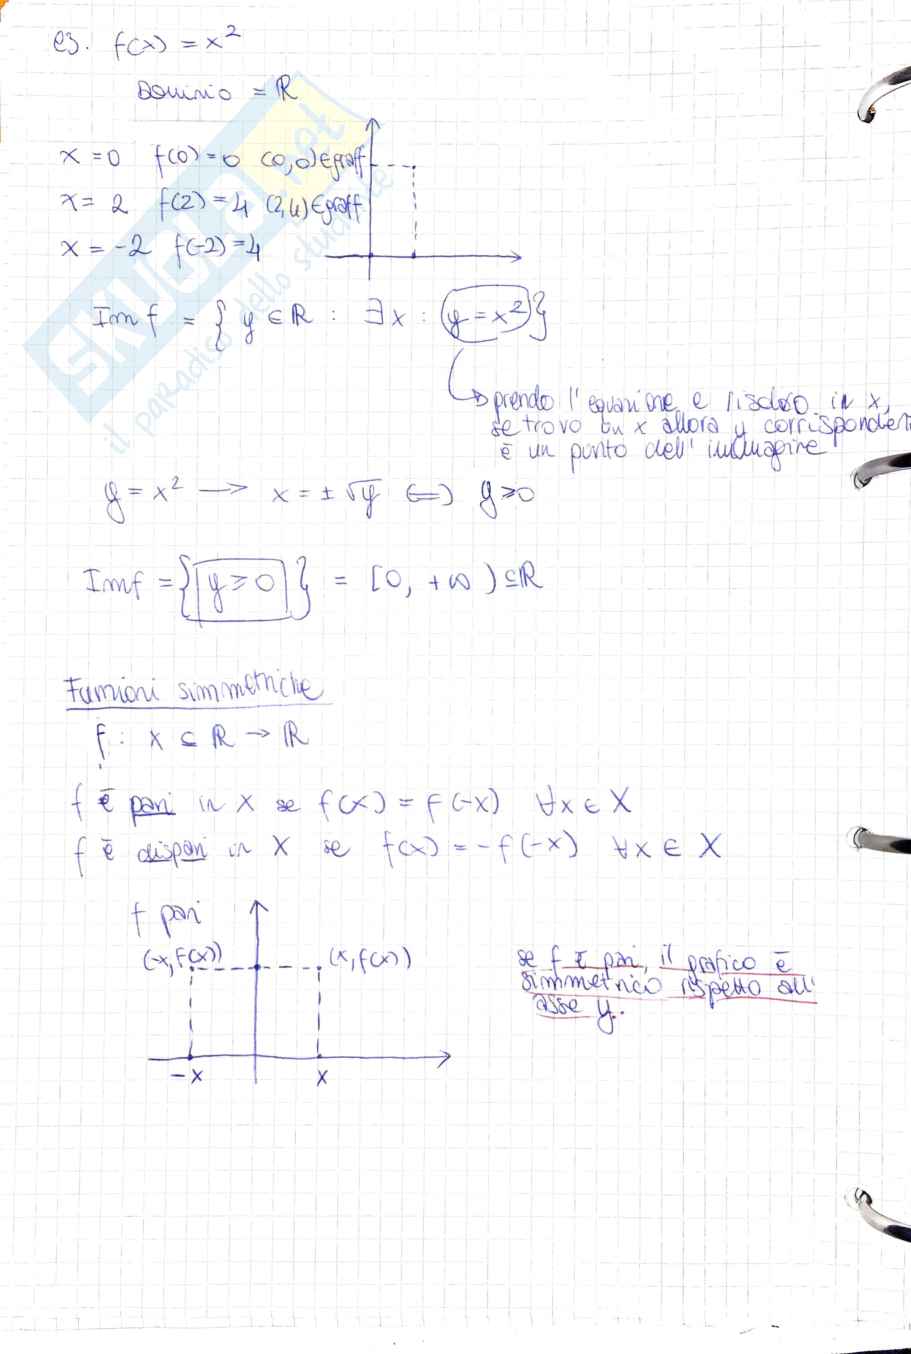 es. f(x) = x²
Dominio = ℝ
x = 0 f(0) = 0 (0,0) ∈ graff
x = 2 f(2) = 4 (2,4) ∈ graff
x = -2 f(-2) = 4
Im f = { y ∈ ℝ : ∃ x : y = x² }
prendo l'equazione e risolvo in x,
se trovo un x allora y corrispondente
è un punto dell'immagine
y = x² → x = ± √y ⟺ y ≥ 0
Im f = { y ≥ 0 } = [0, +∞) ⊆ ℝ
Funzioni simmetriche
f : X ⊆ ℝ → ℝ
f è pari in X se f(x) = f(-x) ∀x ∈ X
f è dispari in X se f(x) = -f(-x) ∀x ∈ X
f pari
(-x, f(x)) (x, f(x))
-x x
se f è pari, il grafico è
simmetrico rispetto all'
asse y.
SKUOLA.net
il paradiso dello studente